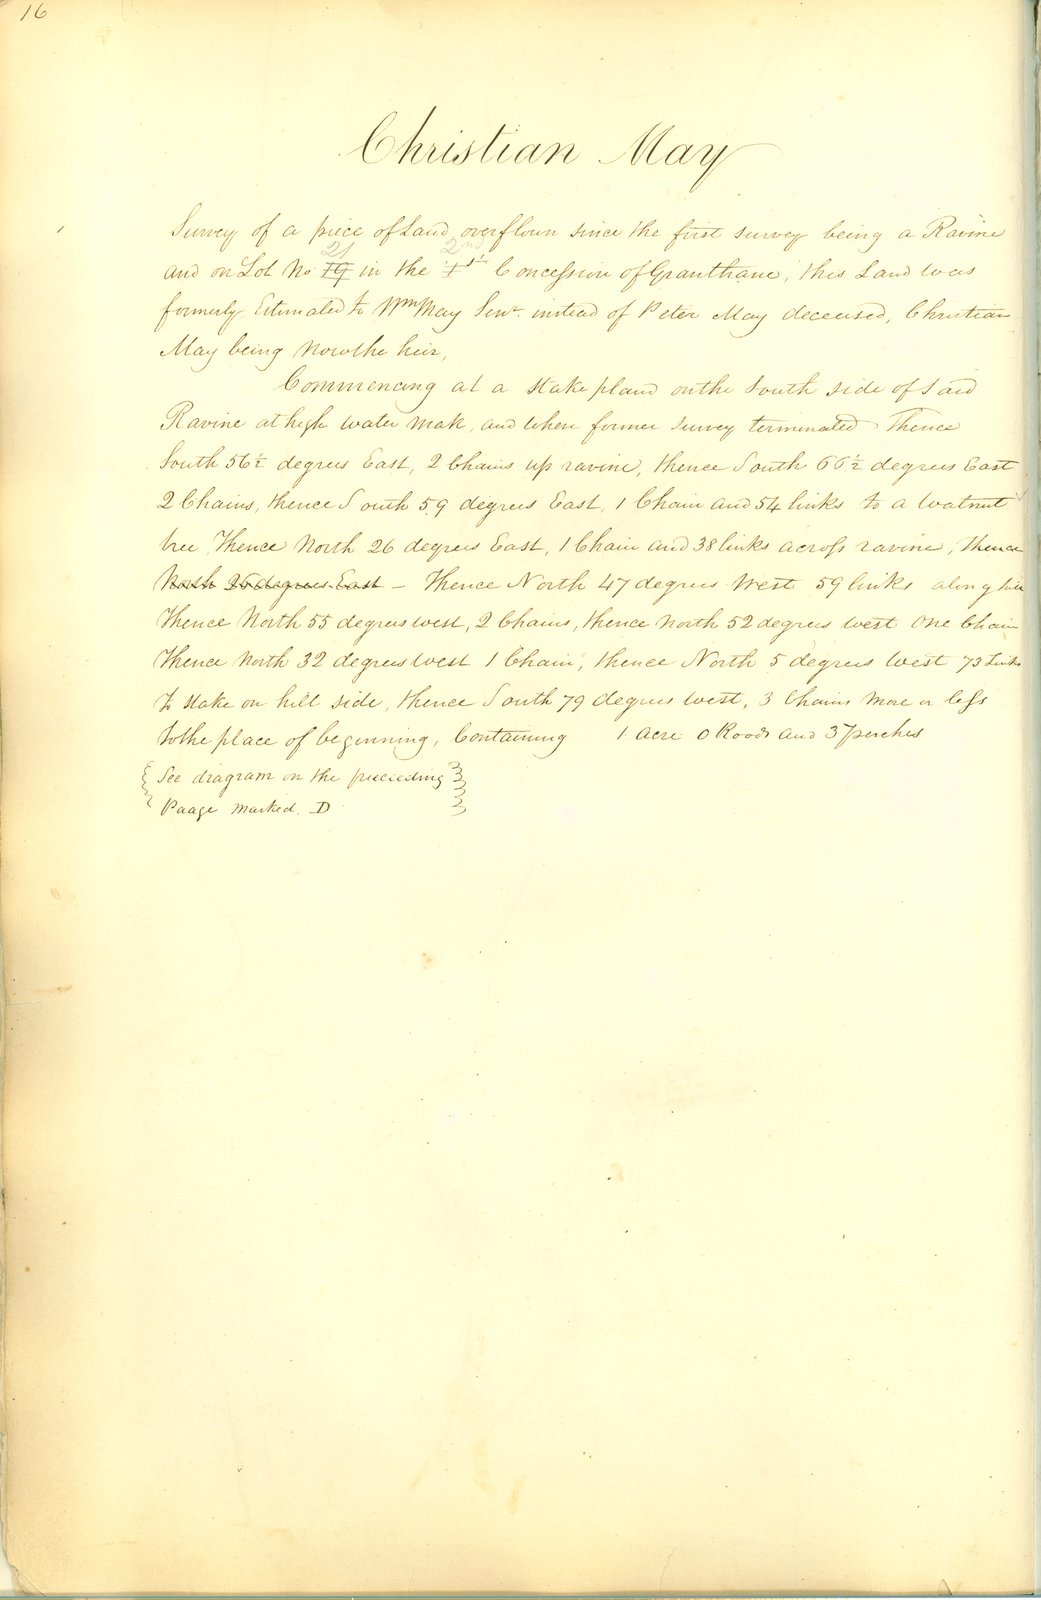 16
Christian May
Survey of a piece of Land overflown since the first survey being a Ravine
21 2nd
and on Lot No 19 in the 1st Concession of Granthane, this Land was
formerly Estimated to Wm May Senr. instead of Peter May deceased, Christian
May being now the heir,
Commencing at a stake pland on the South side of Said
Ravine at high water mak, and where former survey terminated Thence
South 56½ degrees East, 2 Chains up ravine, thence South 66½ degrees East
2 Chains, thence South 59 degrees East, 1 Chain and 54 links to a walnut
tree Thence North 26 degrees East, 1 Chain and 38 links across ravine, thence
North 25 degrees East – Thence North 47 degrees West 59 links along
Thence North 55 degrees west, 2 Chains, thence North 52 degrees west One Chain
Thence North 32 degrees west 1 Chain, thence North 5 degrees West 73 Links
To stake on hill side, thence South 79 degrees west, 3 Chains more or less
To the place of beginning, Containing 1 acre 0 Roods and 37 perches
See diagram on the preceeding
Paage marked. D